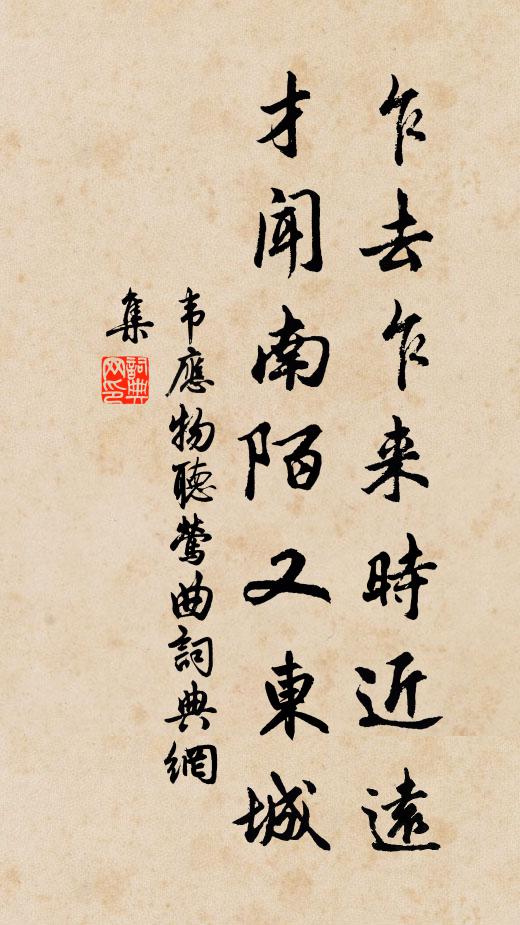 乍去乍来時近遠
才聞南陌又東城
韦應物聽鶯曲詞典網
集
詞典
网印